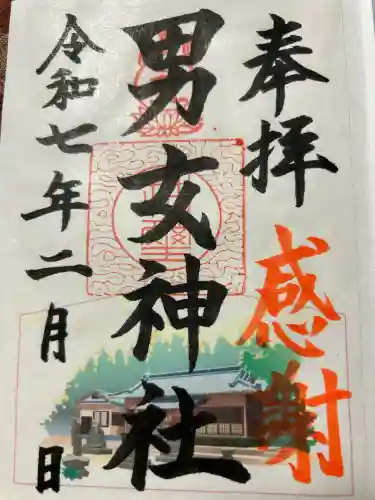 奉拝
感謝
男女神社
令和七年二月　日